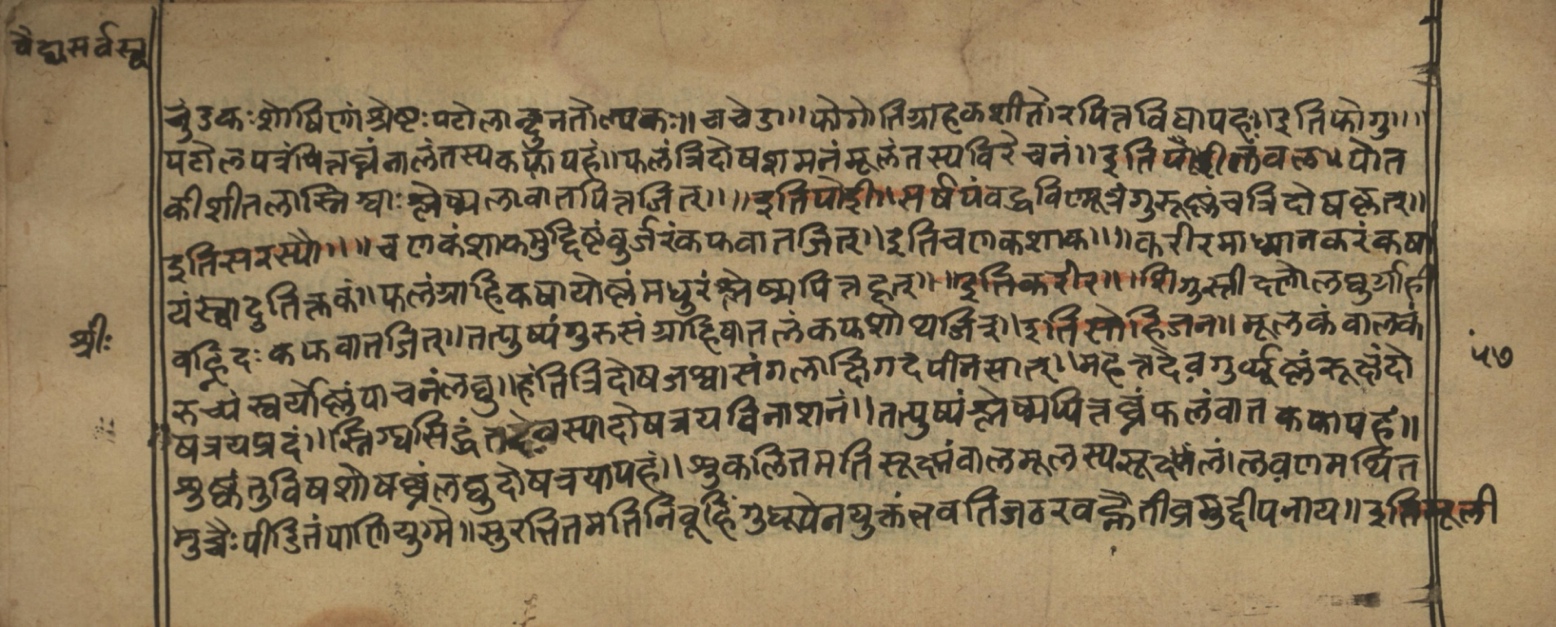 वैद्यसर्वस्व
चुंडकःशोषिणांश्रेष्टःपटोलान्न्यूनतोल्पकः॥ चचेडा॥ फोगोतिग्राहकशीतोरपित्तविषापहः॥ इति फोगु॥॥
पटोलपत्रंपित्तघ्नंनालंतस्यकफापहं॥ फलंत्रिदोषशमनंमूलंतस्यविरेचनं॥ इति वल॥ पोत
कीशीतलास्निग्धाःश्लेष्मलावातपित्तजित्॥॥ इतिपोई॥ सर्षपंवद्धविण्मूत्रंगुरूष्णंचत्रिदोषकृत्॥
इतिसरस्यौ॥॥ चणकंशाकमुद्दिष्टंदुर्जरंकफवातजित्॥ इतिचणकशाक॥॥ करीरमाध्मानकरंकषा
यंस्वादुतिक्तकं॥ फलंग्राहिकषायोष्णंमधुरंश्लेष्मपित्तहृत्॥॥ इतिकरीर॥॥ शिग्रुस्तीदणोलघुर्ग्राही
वह्निदः कफवातजित्॥ तत्पुष्पंगुरुसंग्राहिवातलंकफशोथजित्॥ इतिसोहिजन॥ मूलकंवालकं
रुच्यंस्वर्योष्णंपाचनंलघु॥ हंतित्रिदोषजश्वासंगलाक्षिगदपीनसात्॥ महत्तदेवगुर्व्यूष्णंरूक्षंदो
षत्रयप्रदं॥ स्निग्धसिद्धंतदेवस्यादोषत्रयविनाशनं॥ तत्पुष्पंश्लेष्मपित्तघ्नंफलंवातकफापहं॥
शुष्कंतुविषशोषघ्नंलघुदोषत्रयापहं॥ शुकलितमतिसूक्ष्मंवालमूलस्य लवणमथित
मुच्चैःपीडितंपाणियुग्मे॥ सुरसितमतिनिंबूहिंगुधूपेनयुक्तंभवतिजठरवह्नैतीव्रमुद्दीपनाय॥ इतिमूली
श्रीः
५७